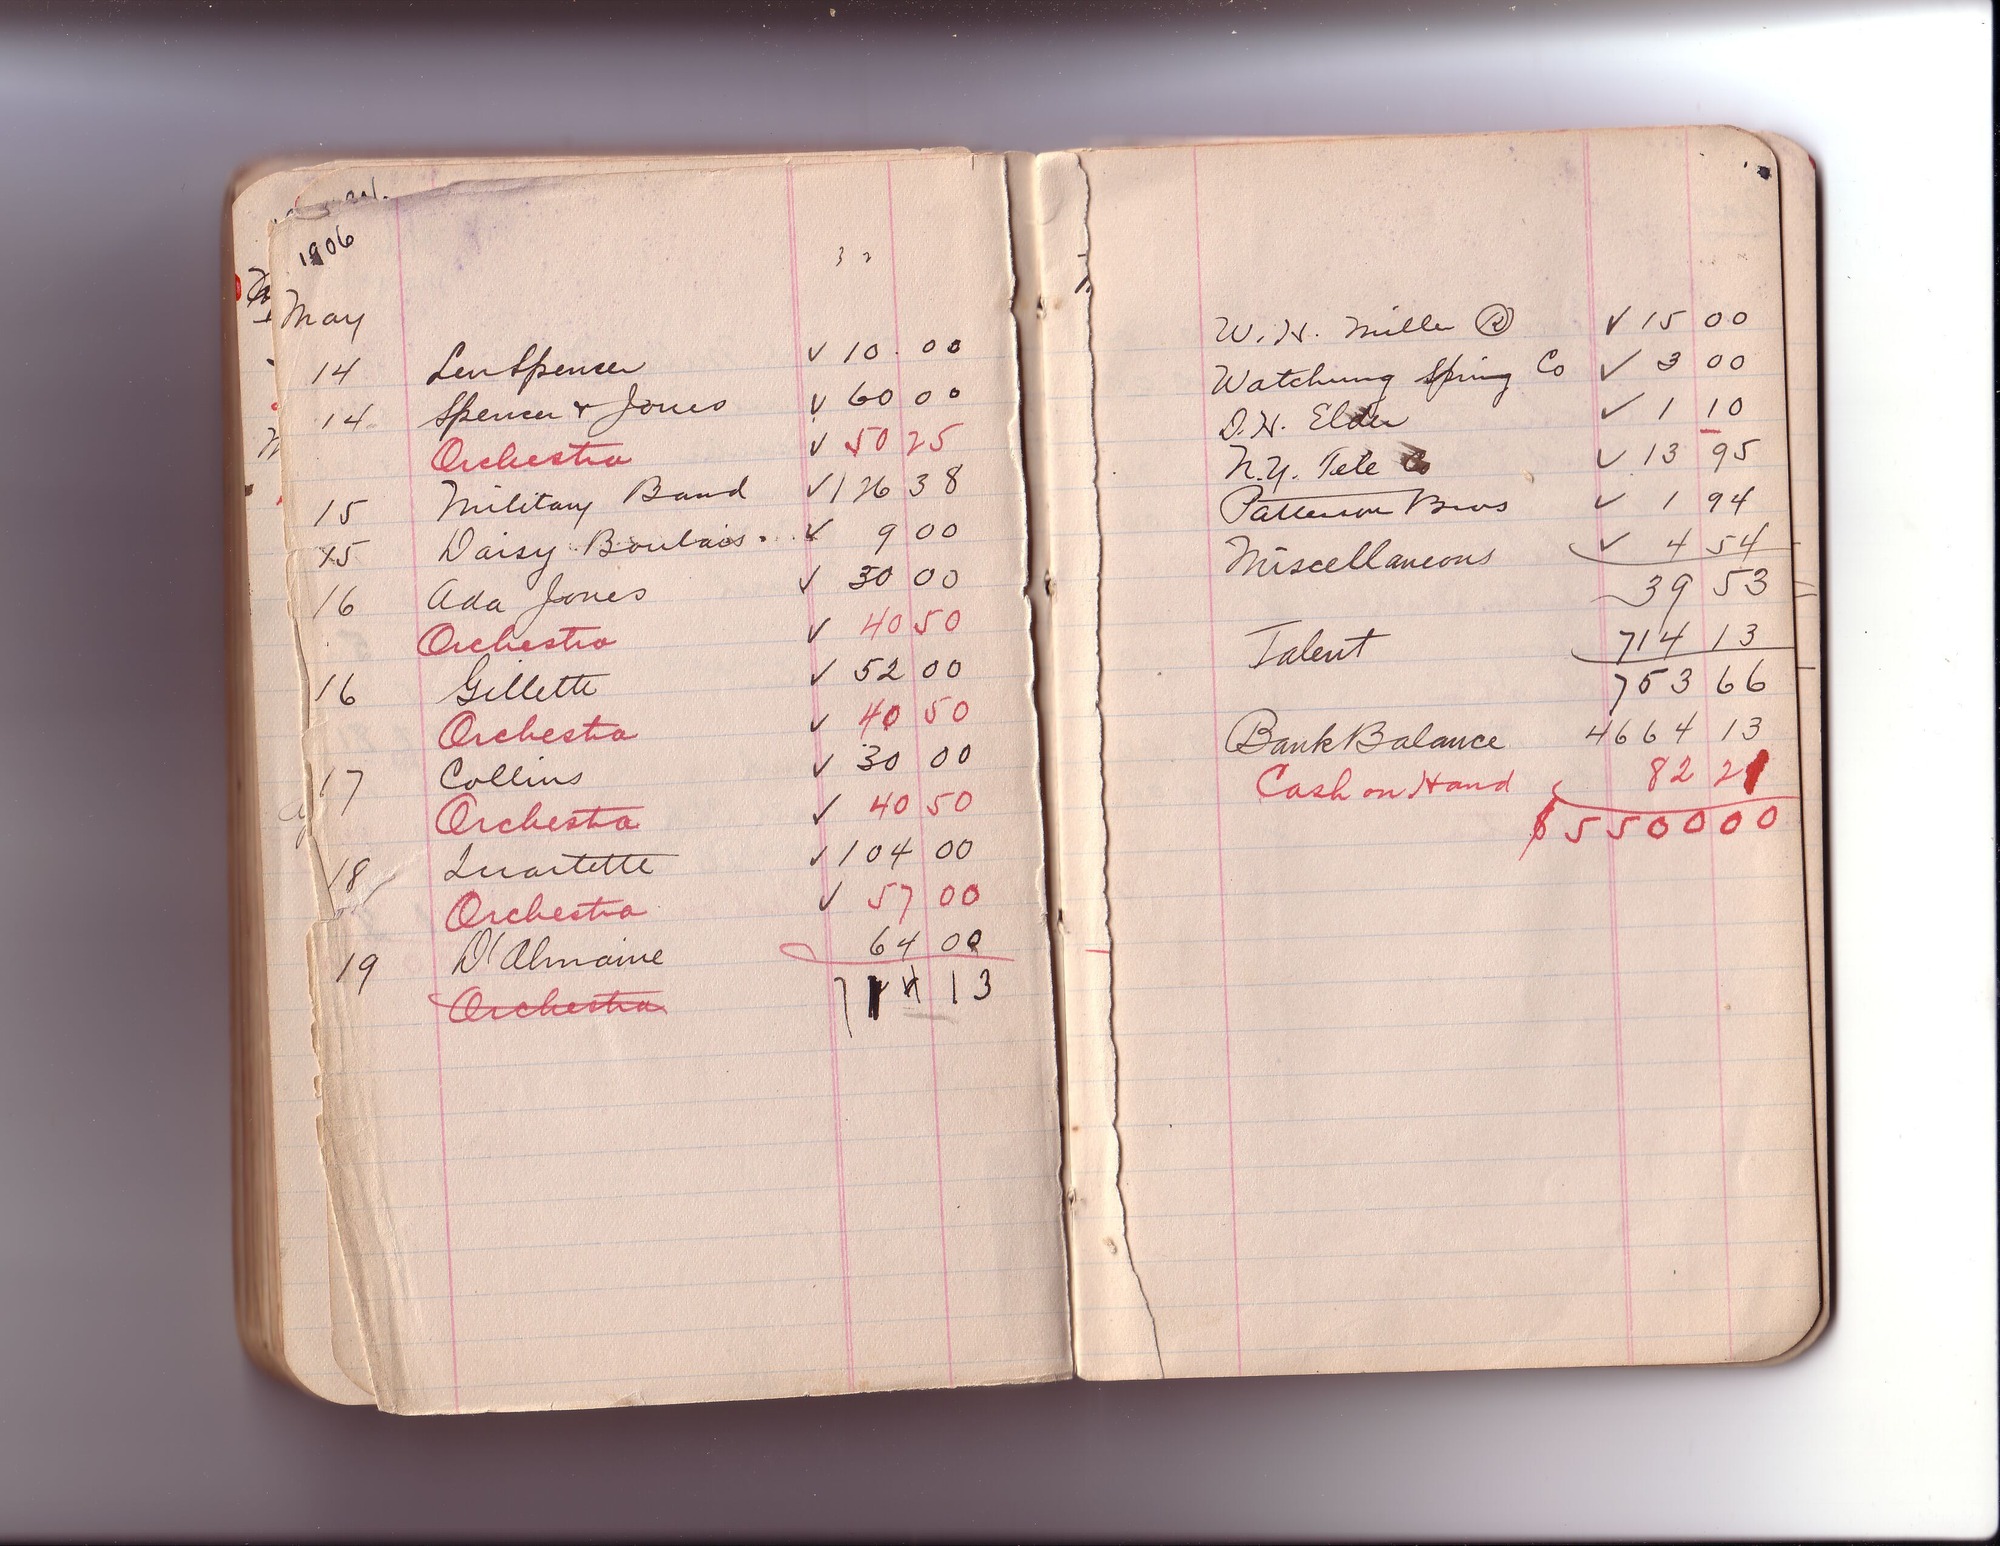 1906
3 2
May
14 Len Spencer ✓ 10.00
14 Spencer & Jones ✓ 60 00
Orchestra ✓ 50 25
15 Military Band ✓ 126 38
15 Daisy Boulais ✓ 9 00
16 Ada Jones ✓ 30 00
Orchestra ✓ 40 50
16 Gillette ✓ 52 00
Orchestra ✓ 40 50
17 Collins ✓ 30 00
Orchestra ✓ 40 50
18 Quartette ✓ 104 00
Orchestra ✓ 57 00
19 D'Almaine 64 00
Orchestra 714 13
W. H. Miller (R) ✓ 15 00
Watchung Spring Co ✓ 3 00
D. H. Elder ✓ 1 10
N.Y. Tele Co ✓ 13 95
Patterson Bros ✓ 1 94
Miscellaneous ✓ 4 54
39 53
Talent 714 13
753 66
Bank Balance 4664 13
Cash on Hand 82 21
$5500 00